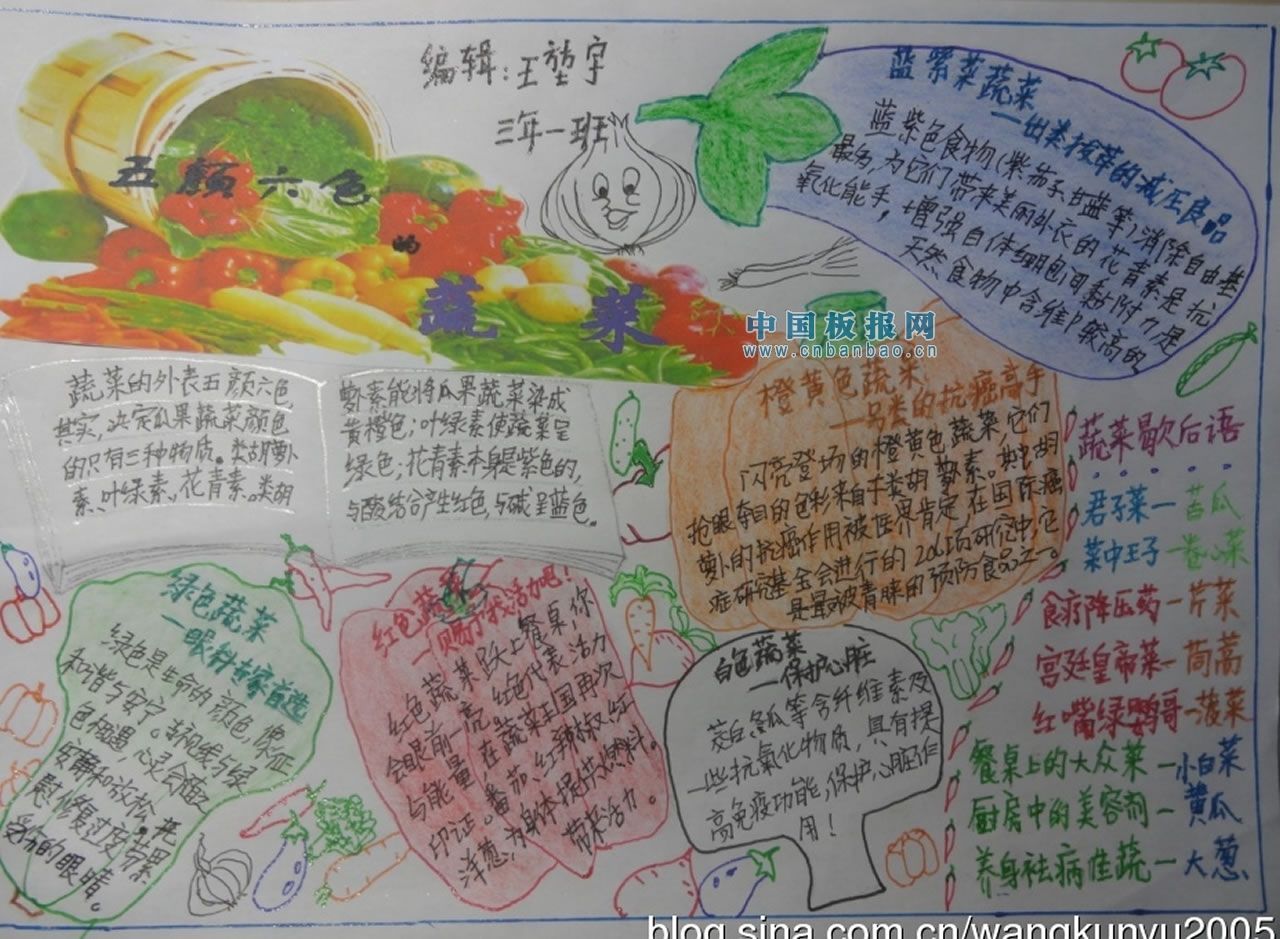 编辑:王堃宇
三年一班
五颜六色
的
蔬菜
中国板报网
www.cnbanbao.cn
蓝紫菜蔬菜
—出类拔萃的减压良品
蓝紫色食物(紫茄子甘蓝等)消除自由基
最多,为它们带来美丽外衣的花青素是抗
氧化能手,增强自体细胞回黏附力是
天然食物中含维P较高的
蔬菜的外表五颜六色
其实,决定瓜果蔬菜颜色
的只有三种物质。类胡萝卜
素、叶绿素、花青素。类胡
萝素能将瓜果蔬菜染成
黄橙色;叶绿素使蔬菜呈
绿色;花青素本身是紫色的,
与酸结合产生红色,与碱呈蓝色。
橙黄色蔬菜
—另类的抗癌高手
闪亮登场的橙黄色蔬菜,它们
抢眼夺目的色彩来自类胡萝素。其中胡
萝卜的抗癌作用被医界肯定在国际癌
症研究基金会进行的206项研究中,它
是最被青睐的预防食品之一。
蔬菜歇后语
君子菜—苦瓜
菜中王子—卷心菜
食疗降压药—芹菜
宫廷皇帝菜—茼蒿
红嘴绿鹦哥—菠菜
餐桌上的大众菜—小白菜
厨房中的美容剂—黄瓜
养身祛病佳蔬—大葱
绿色蔬菜
—眼科专家首选
绿色是生命的颜色,象征
和谐与安宁。当视线与绿
色相遇,心灵会随之
安静和放松。把
慰修复过度劳累
受伤的眼睛。
红色蔬菜
—赐予我活力吧!
红色蔬菜跃上餐桌,你
会眼前一亮,红色代表活力
与能量,在蔬菜王国再次
印证。番茄、红辣椒、红
洋葱,为身体提供燃料。
带来活力。
白色蔬菜
—保护心脏
茭白冬瓜等含纤维素及
一些抗氧化物质,具有提
高免疫功能,保护心脏作
用!
blog.sina.com.cn/wangkunyu2005